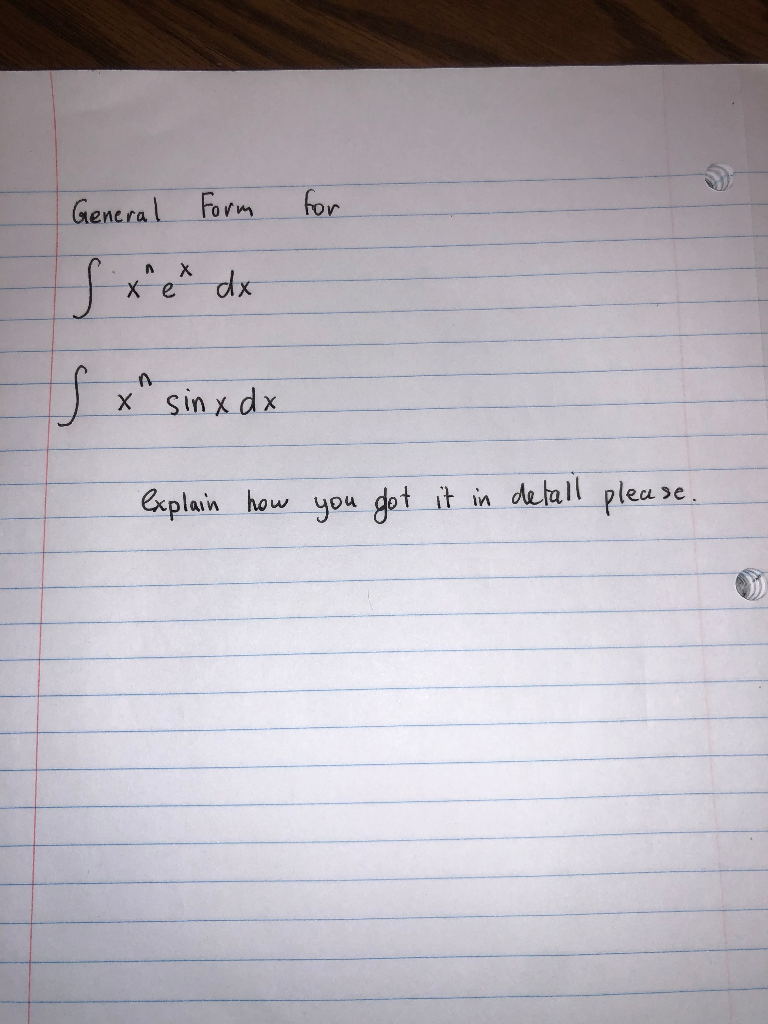 General Form for
∫ xⁿ eˣ dx
∫ xⁿ sin x dx
explain how you got it in detail please.